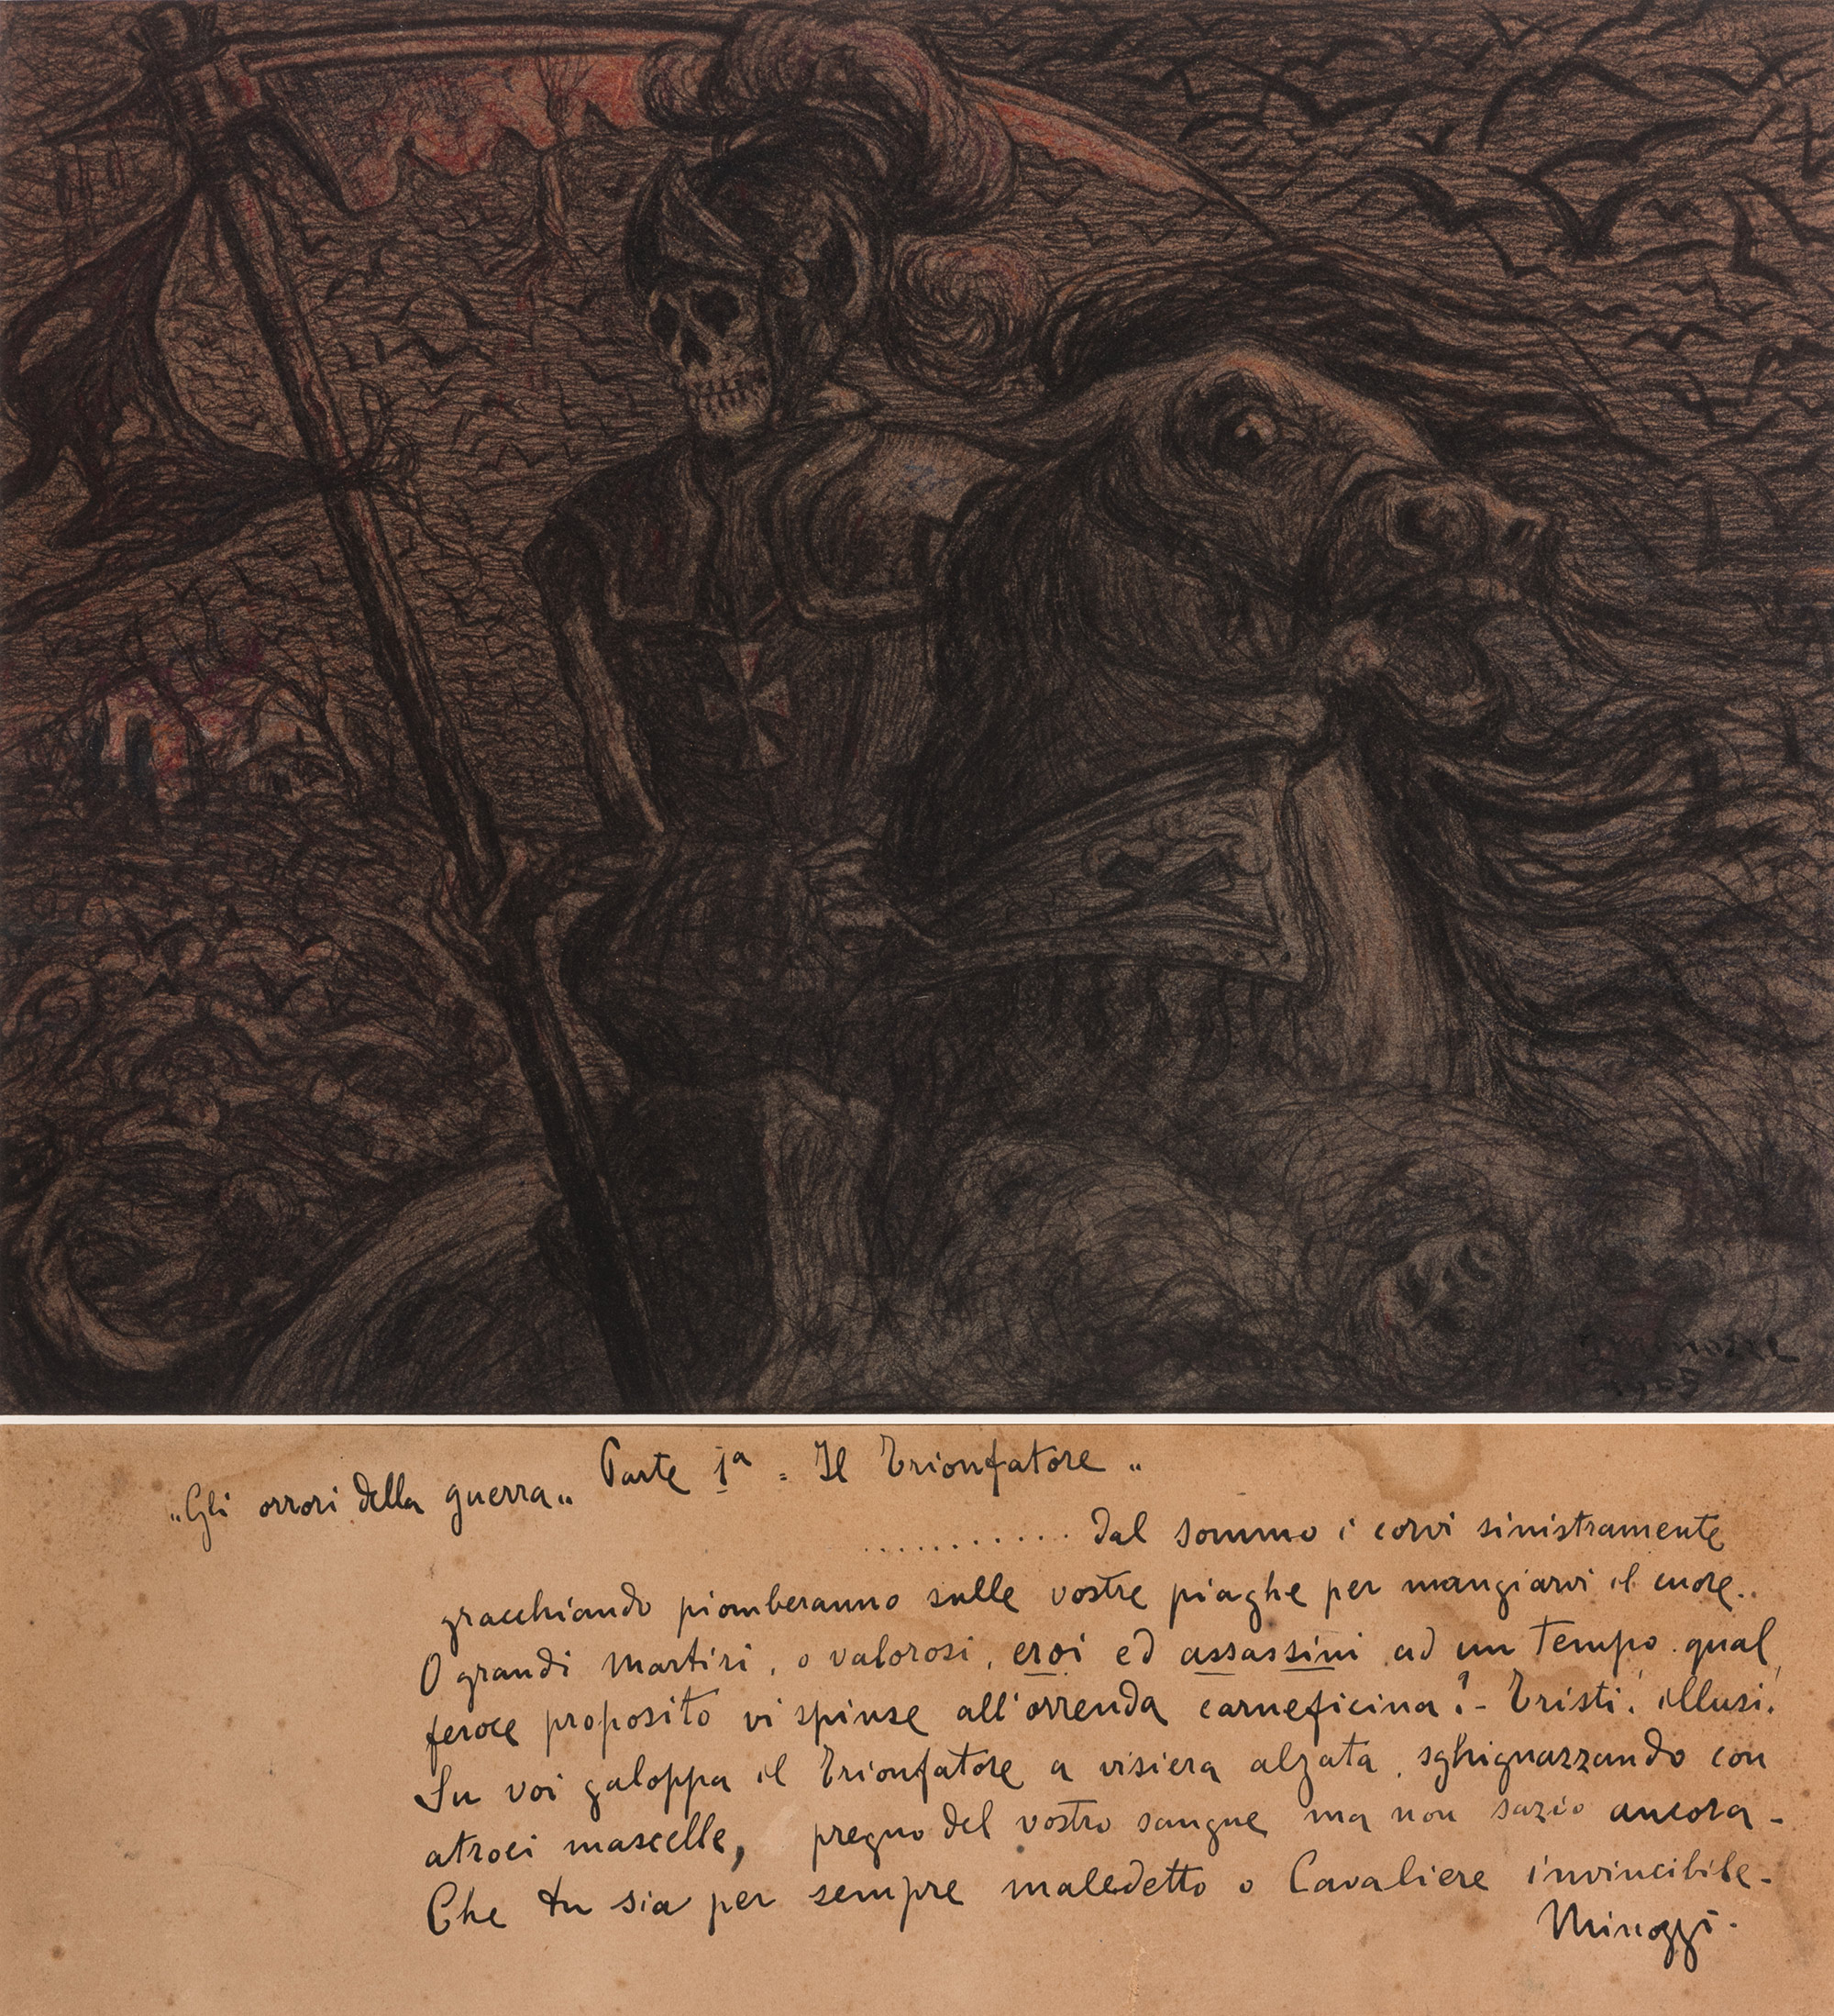 1905
"Gli orrori della guerra" Parte 1a = Il Trionfatore "
........... dal sommo i corvi sinistramente
gracchiando piomberanno sulle vostre piaghe per mangiarvi il cuore..
O grandi martiri, o valorosi, eroi ed assassini ad un tempo qual
feroce proposito vi spinse all'orrenda carneficina? - Tristi! illusi!
Su voi galoppa il Trionfatore a visiera alzata, sghignazzando con
atroci mascelle, pregno del vostro sangue ma non sazio ancora -
Che tu sia per sempre maledetto o Cavaliere invincibile -
Minozzi.